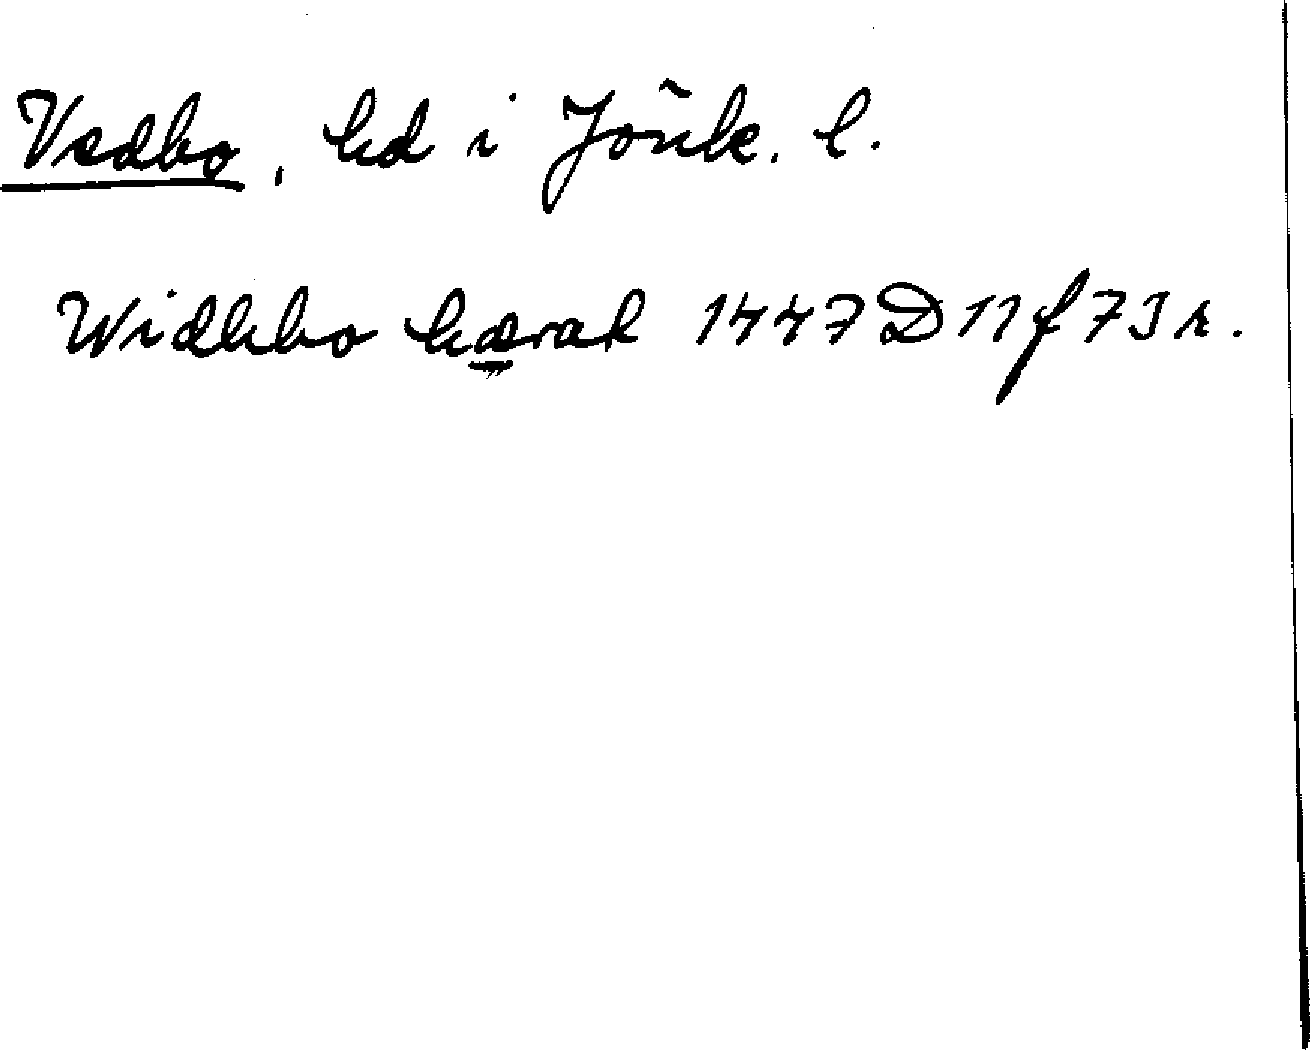 Vedbo, hd i Jönk. l.
Widhbo hærad 1447 D 11 f 73 r.